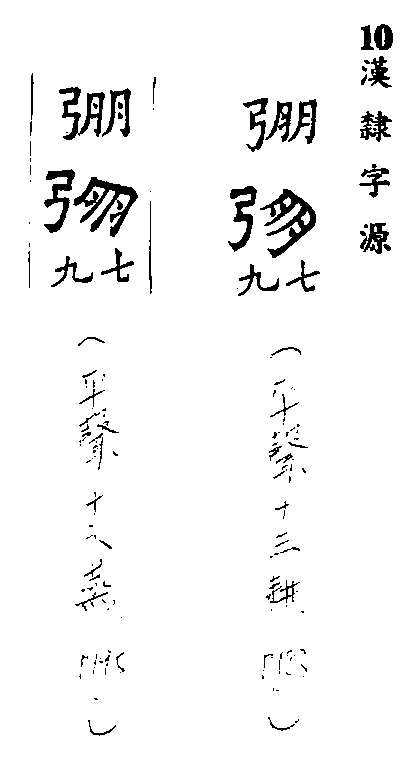 10漢隸字源
弸
七九
(平聲十三耕 )
弸
七九
(平聲十六蒸 )